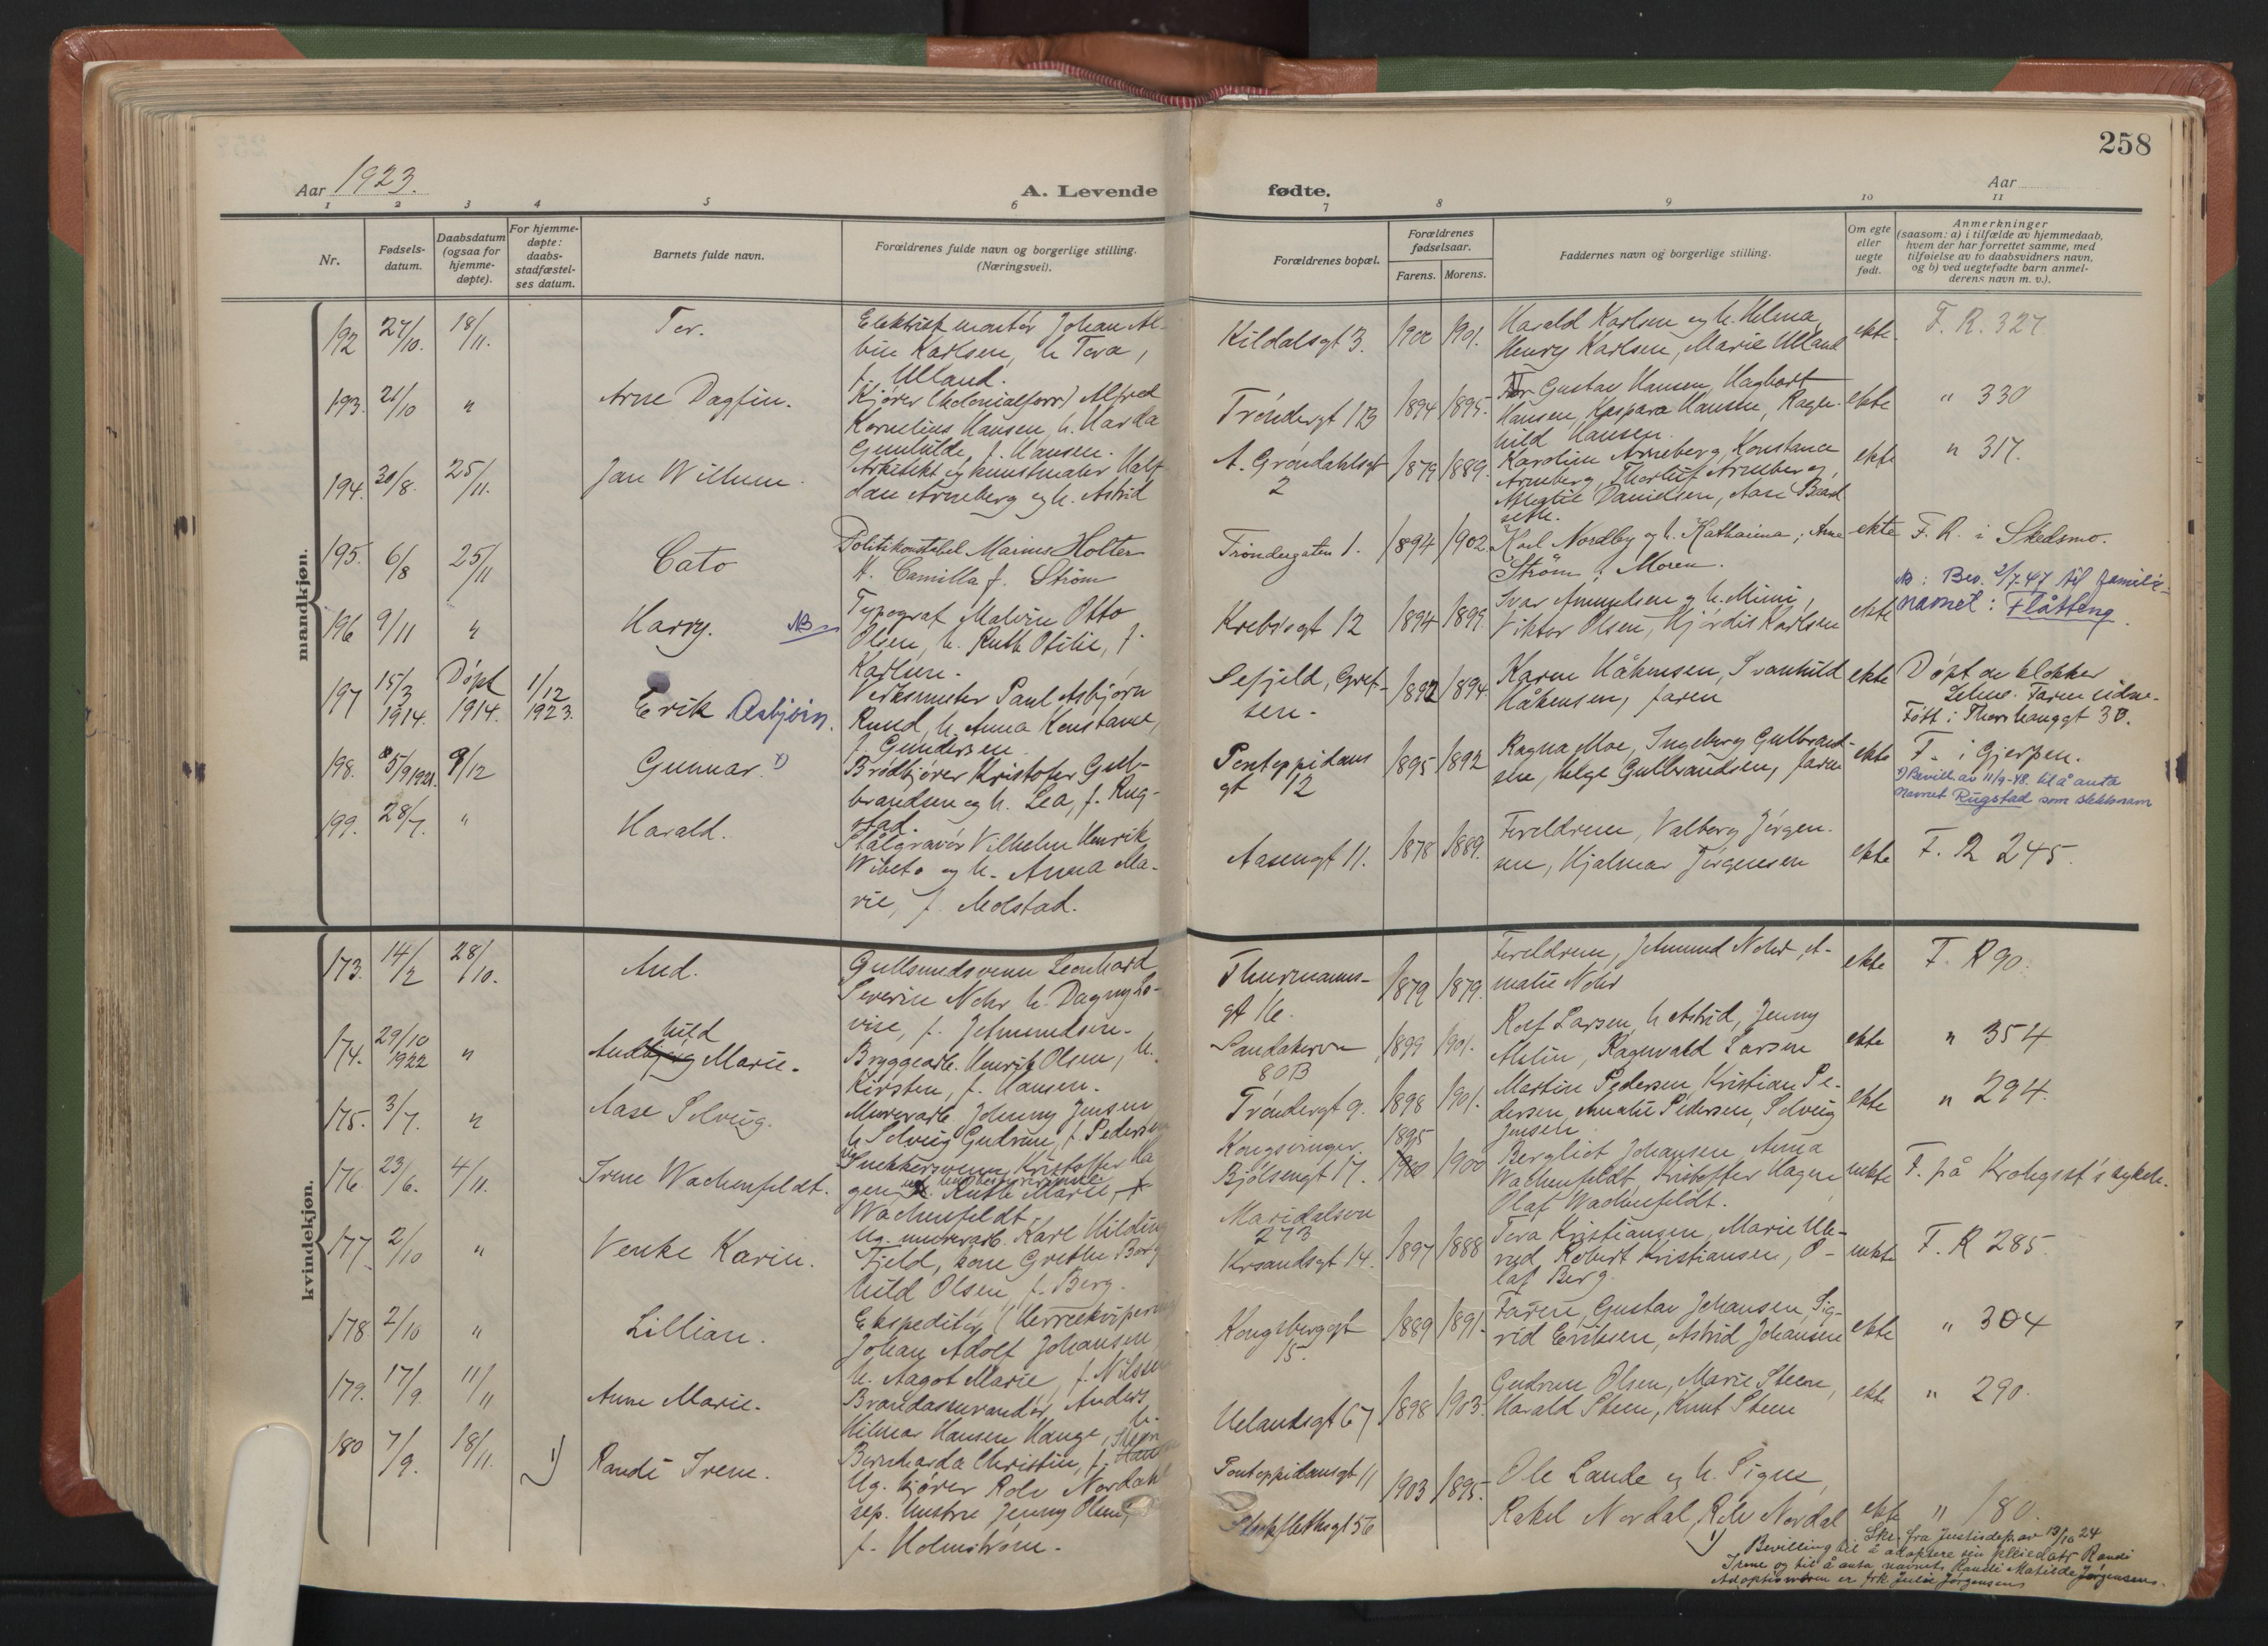 258
Aar 1923.
A. Levende
fødte.
Aar
1 2 3 4 5 6 7 8 9 10 11
Nr.
Fødsels-
datum.
Daabsdatum
(ogsaa for
hjemme-
døpte).
For hjemme-
døpte:
daabs-
stadfæstel-
ses datum.
Barnets fulde navn.
Forældrenes fulde navn og borgerlige stilling.
(Næringsvei).
Forældrenes bopæl.
Forældrenes
fødselsaar.
Farens. Morens.
Faddernes navn og borgerlige stilling.
Om egte
eller
uegte
født.
Anmerkninger
(saasom: a) i tilfælde av hjemmedaab,
hvem der har forrettet samme, med
tilføielse av to daabsvidners navn,
og b) ved uegtefødte barn anmel-
derens navn m. v.).
mandkjøn.
192 27/10. 18/11.
Tor.
Elektrisk montør Johan Al-
bin Karlsen, h. Tora,
f. Ulland.
Kildalsgt 3.
1900 1901.
Harald Karlsen og h. Helma,
Henry Karlsen, Marie Ulland
ekte.
F. R. 327
193. 21/10 "
Arne Dagfin.
Kjører (kolonialforr) Alfred
Kornelius Hansen, h. Harda
Gunhilde, f. Hansen.
Tróndergt 1B
1894 1895.
Gustav Hansen, Hagbart
Hansen, Kaspara Hansen, Ragn-
hild Hansen.
ekte
" 330
194. 30/8. 25/11.
Jan Willum.
Arkitekt og kunstmaler Half-
dan Arneberg og h. Astrid
A. Grøndahlsgt
2
1879 1889.
Karoline Arneberg, Konstance
Arneberg, Thorleif Arneberg,
Danielsen, Aase
ekte
" 317.
195. 6/8 25/11
Cato
Politikonstabel Marius Holter
H. Camilla f. Strøm
Tróndergaten 1.
1894 1902.
Karl Nordby og h. Katharina; Arne
Strøm; Moren.
ekte
F. R. i Skedsmo.
196 9/11 "
Harry. NB
Typograf Malvin Otto
Olsen, h. Ruth Otilie, f.
Karlsen.
Krebsgt 12
1894 1899
Ivar Amundsen og h. Mimi,
Viktor Olsen, Hjørdis Karlsen
ekte
NB: Bev. 2/7-47 til familie-
navnet: Flåtteng.
197 15/3 1914. Døpt 1914. 1/12 1923.
Erik Asbjørn.
Verksmester Paul Asbjørn
Ruud, h. Anna Konstanse,
f. Gundersen.
Lefjeld, Gref-
sen.
1892 1894
Karen Håkensen, Svanhild
Håkensen, faren
ekte
Døpt av klokker
Lehne. Faren vidne.
Født i Thorshauggt 30.
198. 5/9 1921. 9/12
Gunnar. 1)
Brødkjører Kristofer Gull-
brandsen og h. Lea, f. Rug-
stad.
Pontoppidans
gt 12
1895 1892
Ragna Moe, Ingeborg Gulbrand-
sen, Helge Gulbrandsen, faren
ekte
F. i Gjerpen.
1) Bevill. av 11/9-48. til å anta
navnet Rugstad som slektsnavn
199. 28/7. "
Harald.
Stålgravør Vilhelm Henrik
Wibeto og h. Anna Ma-
rie, f. Molstad.
Aasengt 11.
1878 1889.
Foreldrene, Valborg Jørgen-
sen, Hjalmar Jørgensen
ekte
F. R 245.
kvindekjøn.
173. 14/2 28/10.
Aud.
Gullsmedsvenn Leonhard
Severin Nohr h. Dagny Lo-
vise, f. Jelmundsen.
Thurmanns-
gt 16.
1879 1879.
Foreldrene, Nohr, A-
malie Nohr
ekte
F. R 90.
174. 29/10 1922 "
hild
Audbjørg Marie.
Bryggearb. Henrik Olsen, h.
Kirsten, f. Hansen.
Sandakervn
80B
1899 1901.
Rolf Larsen, h Astrid, Jenny
Ahlin, Ragnvald Larsen
ekte
" 354
175. 3/7. "
Aase Solveig.
Murerarb. Johnny Jensen
h Solveig Gudrun, f. Pedersen
Tróndergt 9.
1898 1901.
Martin Pedersen, Kristian Pe-
dersen, Amalie Pedersen, Solveig
Jensen
ekte
" 294.
176 23/6. 4/11.
Irene Wachenfeldt.
Snekkersvenn Kristoffer Ha-
gen Ruth Marie,
Wachenfeldt.
Kongsvinger.
Bjølsengt 17.
1895
1900 1900
Bergliot Johansen, Anna
Wachenfeldt, Kristoffer Hagen,
Olaf Wachenfeldt.
uekte
F. på Krohgstt's sykeh.
177. 2/10 "
Venke Karin.
Ug. murerarb. Karl Hilding
Fjeld, kone Grethe Borg-
hild Olsen, f. Berg.
Maridalsvn
273
Krsandsgt 14.
1897 1888
Tora Kristiansen, Marie Ule-
rud, Robert Kristiansen, O-
laf Berg.
uekte
F. R 285.
178 2/10 "
Lillian.
Ekspeditør (Herreekvipering)
Johan Adolf Johansen,
h. Aagot Marie, f. Nilsen
Kongsberggt
15.
1889 1891
Faren, Gustav Johansen, Sig-
rid Eriksen, Astrid Johansen
ekte
" 304
179. 17/9 11/11
Anne Marie.
Brandassurandør, Anders
Hilmar Hansen Hauge, h.
Bernharda Christine, f. Steen
Uelandsgt 67
1898 1903.
Gudrun Olsen, Marie Steen,
Harald Steen, Knut Steen
ekte
" 290.
180 7/9. 18/11.
1) Randi Irene.
Ug. kjører Rolv Nordahl
sep. hustru Jenny Olsen,
f. Holmstrøm.
Pontoppidansgt 11
Stokflethsgt 56
1903 1895.
Ole Lande og h. Signe,
Rakel Nordal, Rolv Nordal
ekte
" 180.
1) Skr. fra Justisdep. av 13/10 24
Bevilling til å adoptere sin pleiedatr Randi
Irene og til å anta navnet Randi Matilde Jørgensen.
Adoptivmoren er frk. Julie Jørgensen